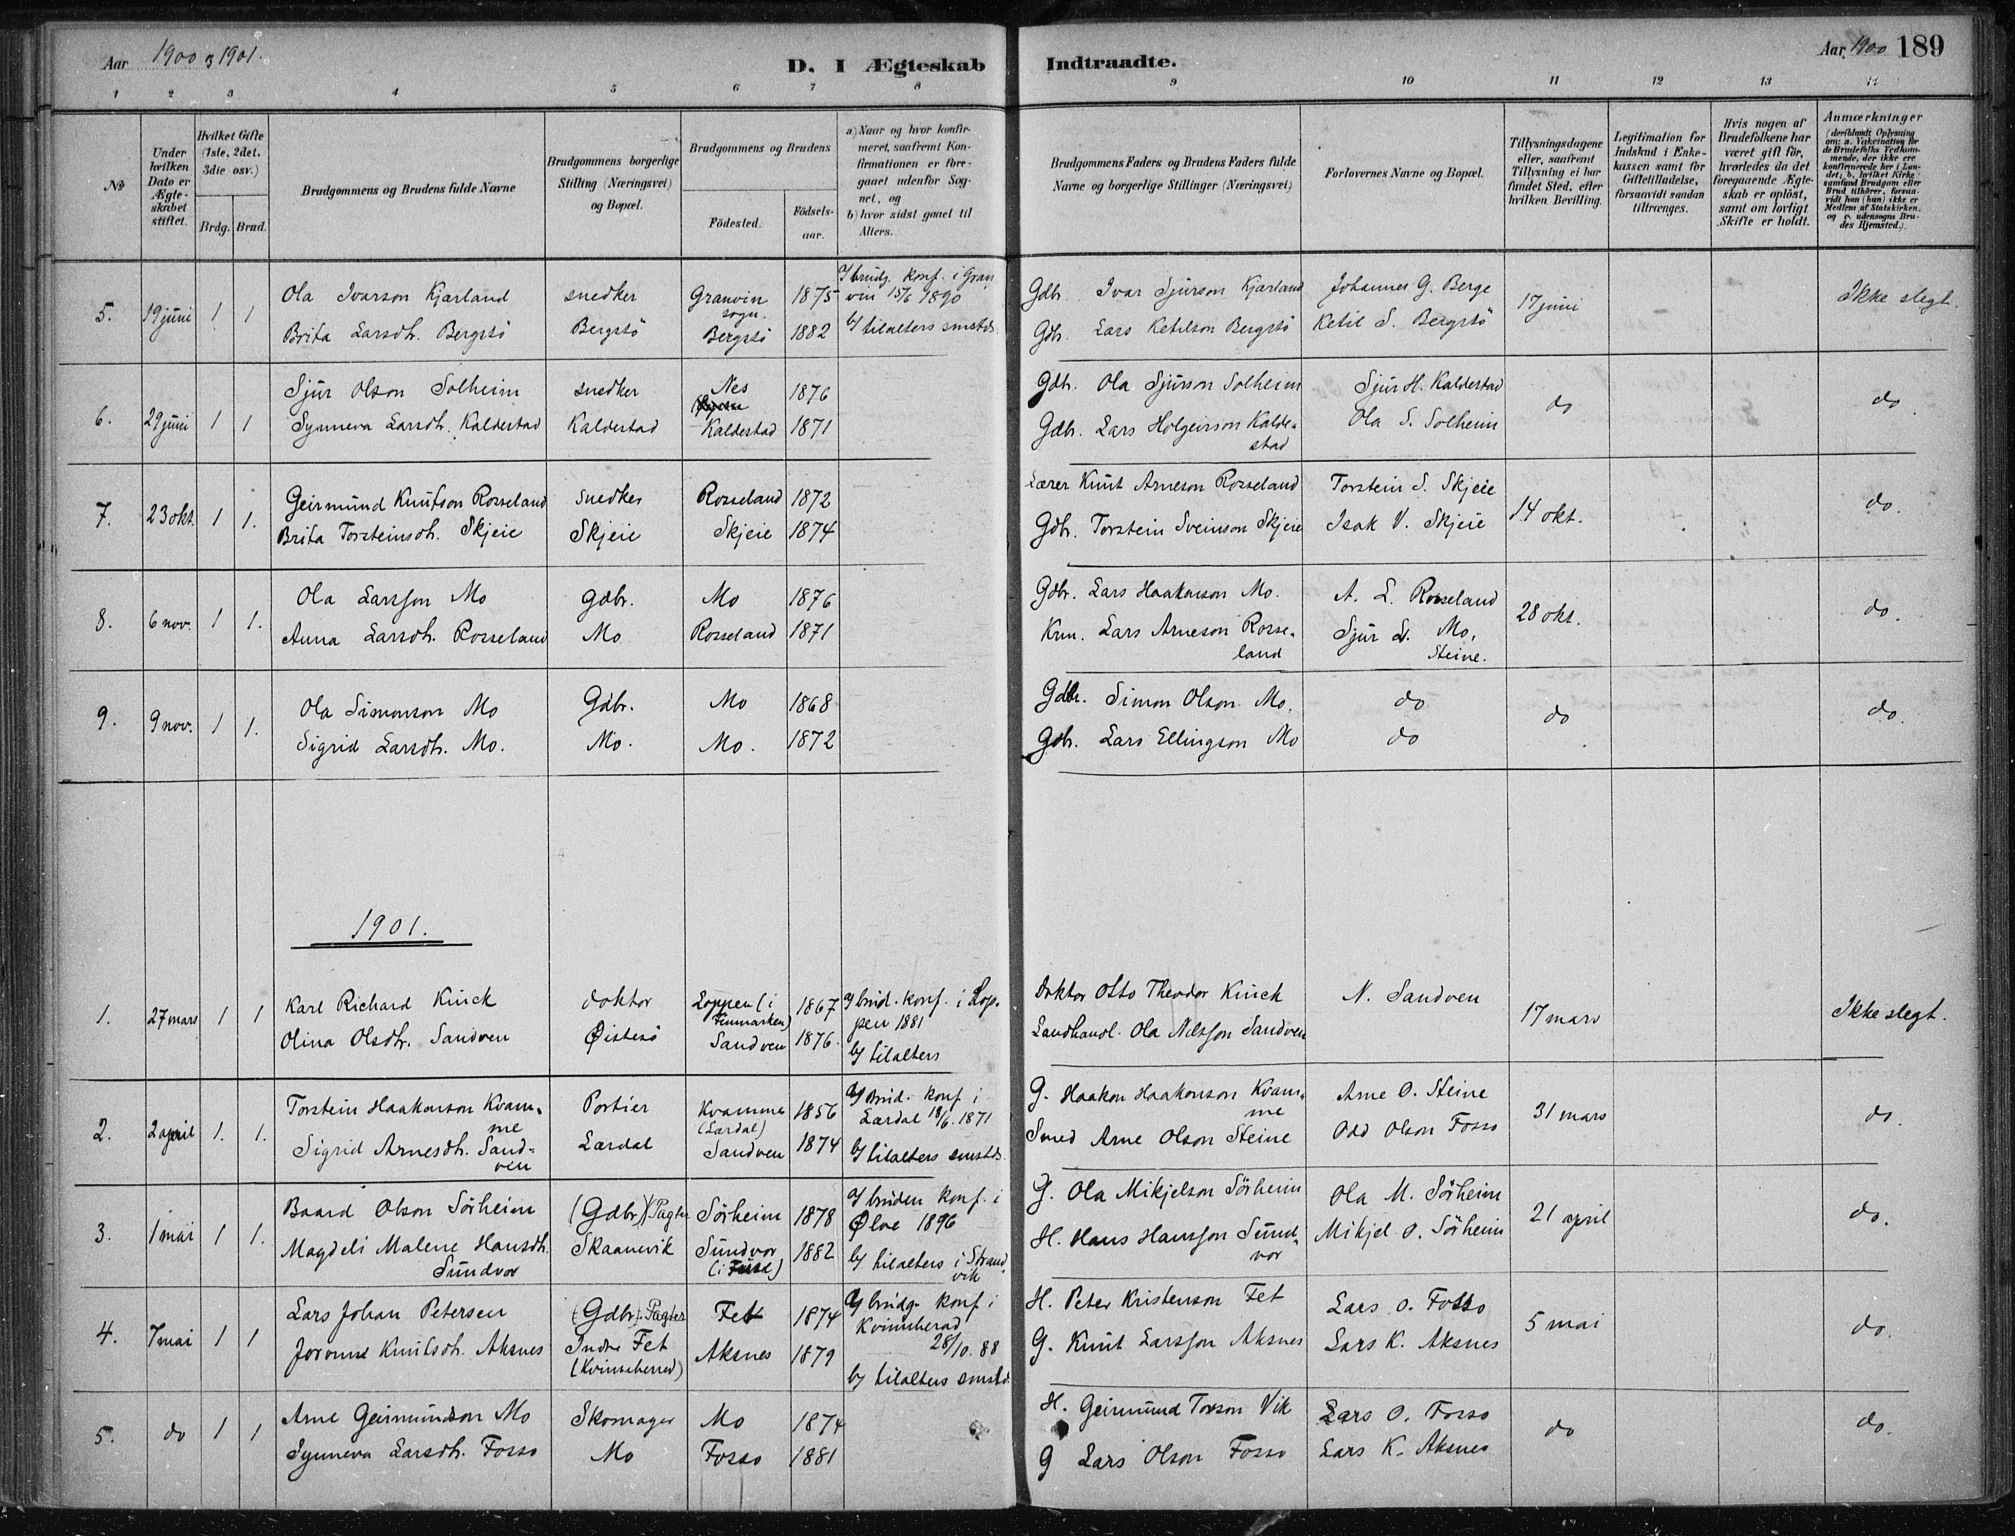 Aar 1900 og 1901.
D. I Ægteskab Indtraadte.
Aar 1900 189
1 2 3 4 5 6 7 8 9 10 11 12 13 14
No
Under hvilken Dato er Ægteskabet stiftet.
Hvilket Gifte (1ste, 2det, 3die osv.)
Brdg. Brud.
Brudgommens og Brudens fulde Navne
Brudgommens borgerlige Stilling (Næringsvei) og Bopæl.
Brudgommens og Brudens
Födested. Födselsaar.
a) Naar og hvor konfirmeret, saafremt Konfirmationen er foregaaet udenfor Sognet, og
b) hvor sidst gaaet til Alters.
Brudgommens Faders og Brudens Faders fulde Navne og borgerlige Stillinger (Næringsvei)
Forlovernes Navne og Bopæl.
Tillysningsdagene eller, saafremt Tillysning ei har fundet Sted, efter hvilken Bevilling.
Legitimation for Indskud i Enkekassen samt for Giftetilladelse, forsaavidt saadan tiltrænges.
Hvis nogen af Brudefolkene har været gift för, hvorledes da det foregaaende Ægteskab er oplöst, samt om lovligt Skifte er holdt.
Anmærkninger
(deriblandt Oplysning om: a. Vakcination for de Brudefolks Vedkommende, der ikke ere konfirmerede her i Landet; b. hvilket Kirkesamfund Brudgom eller Brud tilhörer, forsaavidt han (hun) ikke er Medlem af Statskirken, og c. udensogns Brudes Hjemsted.)
5. 19 juni 1 1 Ola Ivarson Kjærland snedker Granvin sogn. 1875 a/ brudg. konf. i Granvin 15/6 1890 Gdb. Ivar Sjurson Kjærland Johannes G. Berge 17 juni Ikke slegt.
Brita Larsdh. Bergstö Bergstö Bergstö 1882 b/ tilalters smstds. Gdb. Lars Ketilson Bergstö Ketil S. Bergstö
6. 29 juni 1 1 Sjur Olson Solheim snedker Nes 1876 Gdb. Ola Sjurson Solheim Sjur H. Kaldestad do do
Synneva Larsdh. Kaldestad Kaldestad Kaldestad 1871 Gdb. Lars Holgeirson Kaldestad Ola S. Solheim
7. 23 okt. 1 1. Geirmund Knutson Rosseland snedker Rosseland 1872 Lærer Knut Arneson Rosseland Torstein S. Skjeie 14 okt. do.
Brita Torsteinsdh. Skjeie Skjeie Skjeie 1874 Gdb. Torstein Sveinson Skjeie Isak V. Skjeie
8. 6 nov. 1 1. Ola Larsson Mo Gdbr. Mo 1876 Gdbr. Lars Haakonson Mo. A. L. Rosseland 28 okt. do.
Anna Larsdh. Rosseland Mo. Rosseland 1871 Lars Arneson Rosseland Sjur L. Mo, Steine.
9. 9 nov. 1 1. Ola Simonson Mo Gdbr. Mo 1868 Gdbr. Simon Olson Mo. do do do.
Sigrid Larsdh. Mo. Mo. Mo. 1872 Gdb. Lars Ellingson Mo do
1901.
1. 27 mars 1 1 Karl Richard Kinck doktor Loppen (i Finmarken) 1867 a/ brud. konf. i Loppen 1881 Doktor Otto Theodor Kinck N. Sandven 17 mars Ikke slegt.
Olina Olsdh. Sandven Øistesö Sandven 1876. b/ tilalters Landhandl. Ola Nilsson Sandven
2. 2 april 1. 1. Torstein Haakonson Kvamme Portier Kvamme (Lærdal) 1856 a/ Brud. konf i Lærdal 18/6. 1871 G. Haakon Haakonson Kvamme Arne O. Steine 31 mars do.
Sigrid Arnesdh. Sandven Lærdal Sandven 1874 b/ tilalters smstds. Smed Arne Olson Steine Odd Olson Fosso
3. 1 mai 1 1. Baard Olson Sörheim (Gdbr) (Pagter Sörheim 1878 a/ bruden konf. i Ølve 1896 G. Ola Mikjelson Sörheim Ola M. Sörheim 21 april do.
Magdeli Malene Hansdh. Sundvor Skaanevik Sundvor (i Fuse) 1882 b/ tilalters i Strandvik H. Hans Hansson Sundvor Mikjel O. Sörheim
4. 7 mai 1 1 Lars Johan Petersen (Gdbr) Pagter Fet 1874 a/ brudg. konf i Kvinnherad 28/10. 88 H. Peter Kristenson Fet Lars O. Fosso 5 mai do.
Joronne Knutsdh. Aksnes Indre Fet (Kvinneherred) Aksnes 1879 b/ tilalters smstds. G. Knut Larsson Aksnes Lars K. Aksnes
5. do 1 1 Arne Geirmundson Mo Skomager Mo 1874 H. Geirmund Torson Vik Lars O. Fosso do do.
Synneva Larsdh. Fosso Mo Fosso 1881 G Lars Olson Fosso Lars K. Aksnes